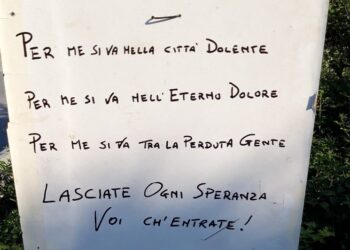 PER ME SI VA NELLA CITTA' DOLENTE
PER ME SI VA NELL'ETERNO DOLORE
PER ME SI VA TRA LA PERDUTA GENTE
LASCIATE OGNI SPERANZA
VOI CH'ENTRATE!